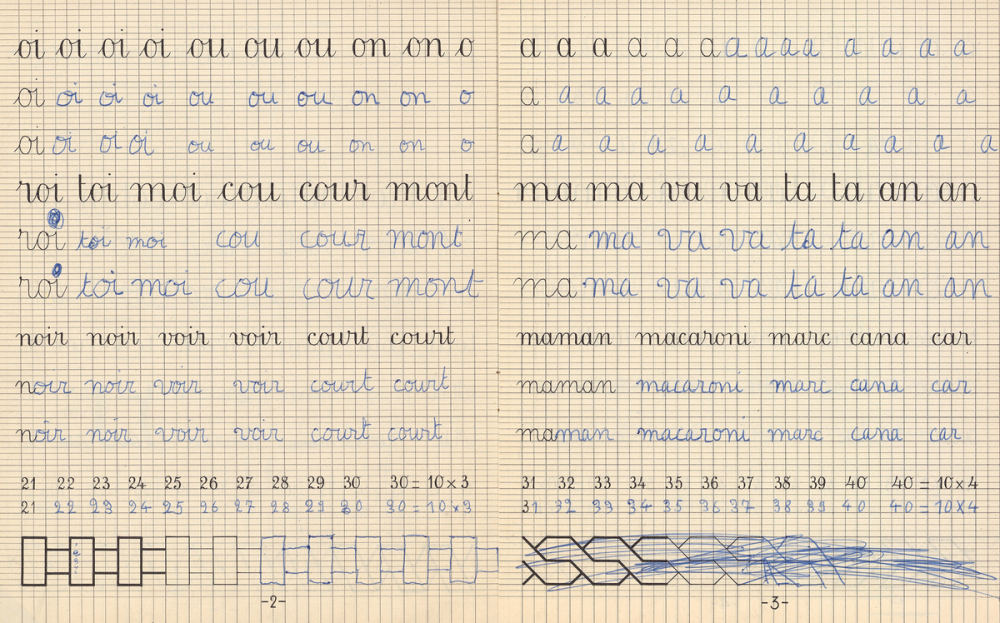 oi oi oi oi ou ou ou on on o
oi oi oi oi ou ou ou on on o
oi oi oi oi ou ou ou on on o
roi toi moi cou cour mont
roi toi moi cou cour mont
roi toi moi cou cour mont
noir noir voir voir court court
noir noir voir voir court court
noir noir voir voir court court
21 22 23 24 25 26 27 28 29 30 30 = 10 x 3
21 22 23 24 25 26 27 28 29 30 30 = 10 x 3
-2-
a a a a a a a a a a a a a a
a a a a a a a a a a
a a a a a a a a a a a
ma ma va va ta ta an an
ma ma va va ta ta an an
ma ma va va ta ta an an
maman macaroni marc cana car
maman macaroni marc cana car
maman macaroni marc cana car
31 32 33 34 35 36 37 38 39 40 40 = 10 x 4
31 32 33 34 35 36 37 38 39 40 40 = 10 X 4
-3-